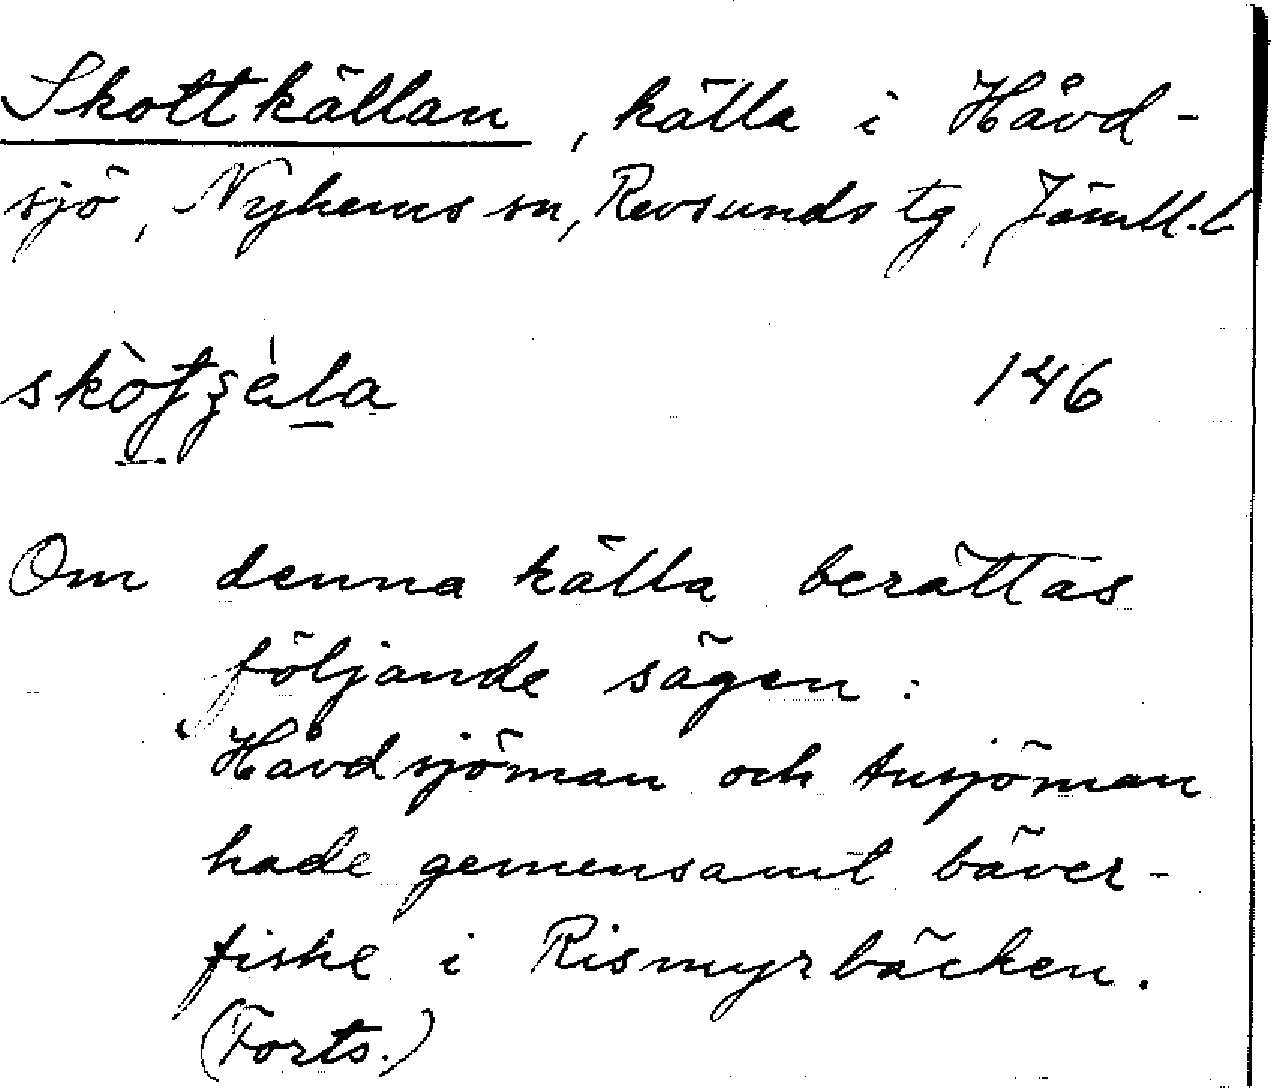 Skottkällan, källa i Håvd-
sjö, Nyhems sn, Revsunds tg, Jämtl.l.
146
Om denna källa berättas
följande sägen:
"Håvdsjöman och Ansjöman
hade gemensamt bäver-
fiske i Rismyrbäcken.
(Forts.)